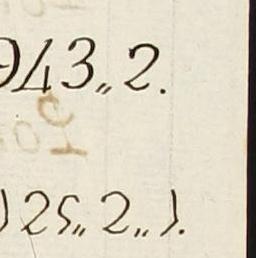 943,,2.
)25,,2,,).